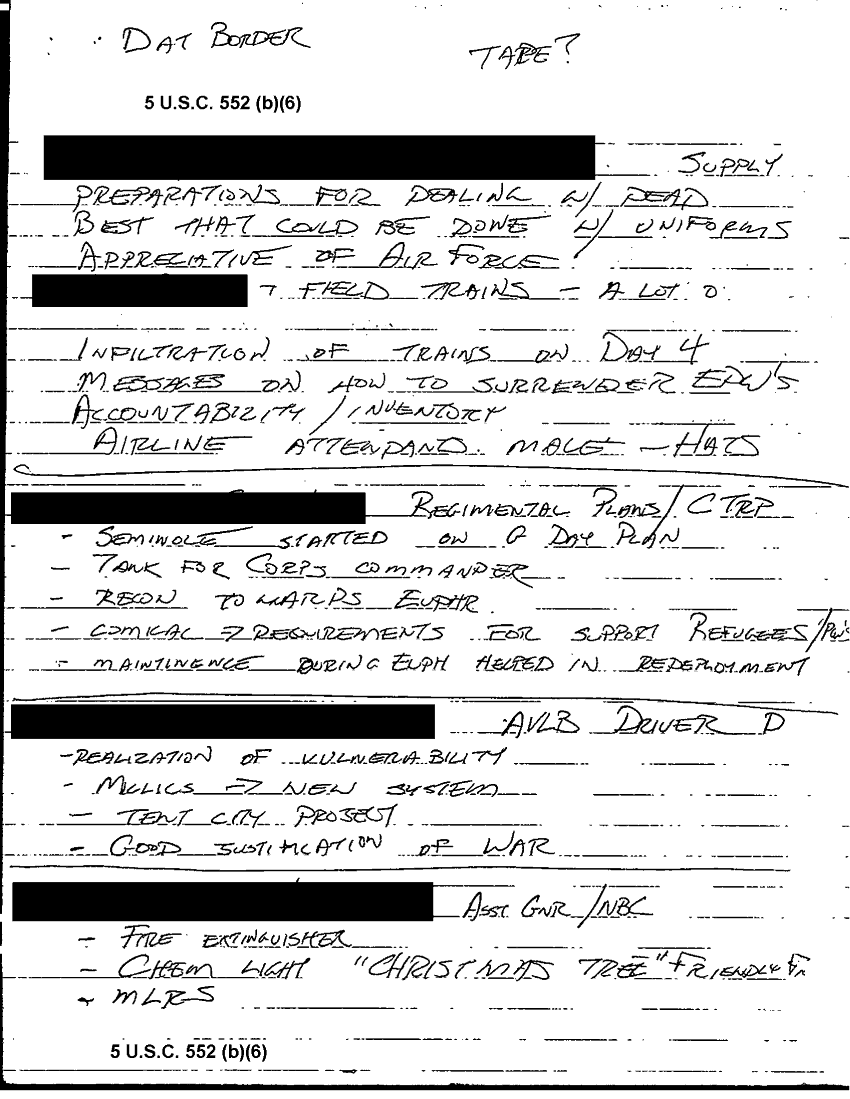 DAT BORDER
TAPE?
5 U.S.C. 552 (b)(6)
SUPPLY
PREPARATIONS FOR DEALING W/ DEAD
BEST THAT COULD BE DONE W/ UNIFORMS
APPRECIATIVE OF AIR FORCE
FIELD TRAINS - A LOT O
INFILTRATION OF TRAINS ON DAY 4
MESSAGES ON HOW TO SURRENDER EPW'S
ACCOUNTABILITY / INVENTORY
AIRLINE ATTENDAND MALE - HATS
REGIMENTAL PLANS / C TRP
- SEMINOLE STARTED ON G DAY PLAN
- TANK FOR CORPS COMMANDER
- RECON TOWARDS EUPHR
- COMICAL → REQUIREMENTS FOR SUPPORT REFUGEES/PW'S
- MAINTINENCE DURING EUPH HELPED IN REDEPLOYMENT
AVLB DRIVER D
- REALIZATION OF VULNERABILITY
- MCLICS → NEW SYSTEM
- TENT CITY PROJECT
- GOOD JUSTIFICATION OF WAR
ASST GNR / NBC
- FIRE EXTINGUISHER
- CHEM LIGHT "CHRISTMAS TREE" FRIENDLY
- MLRS
5 U.S.C. 552 (b)(6)